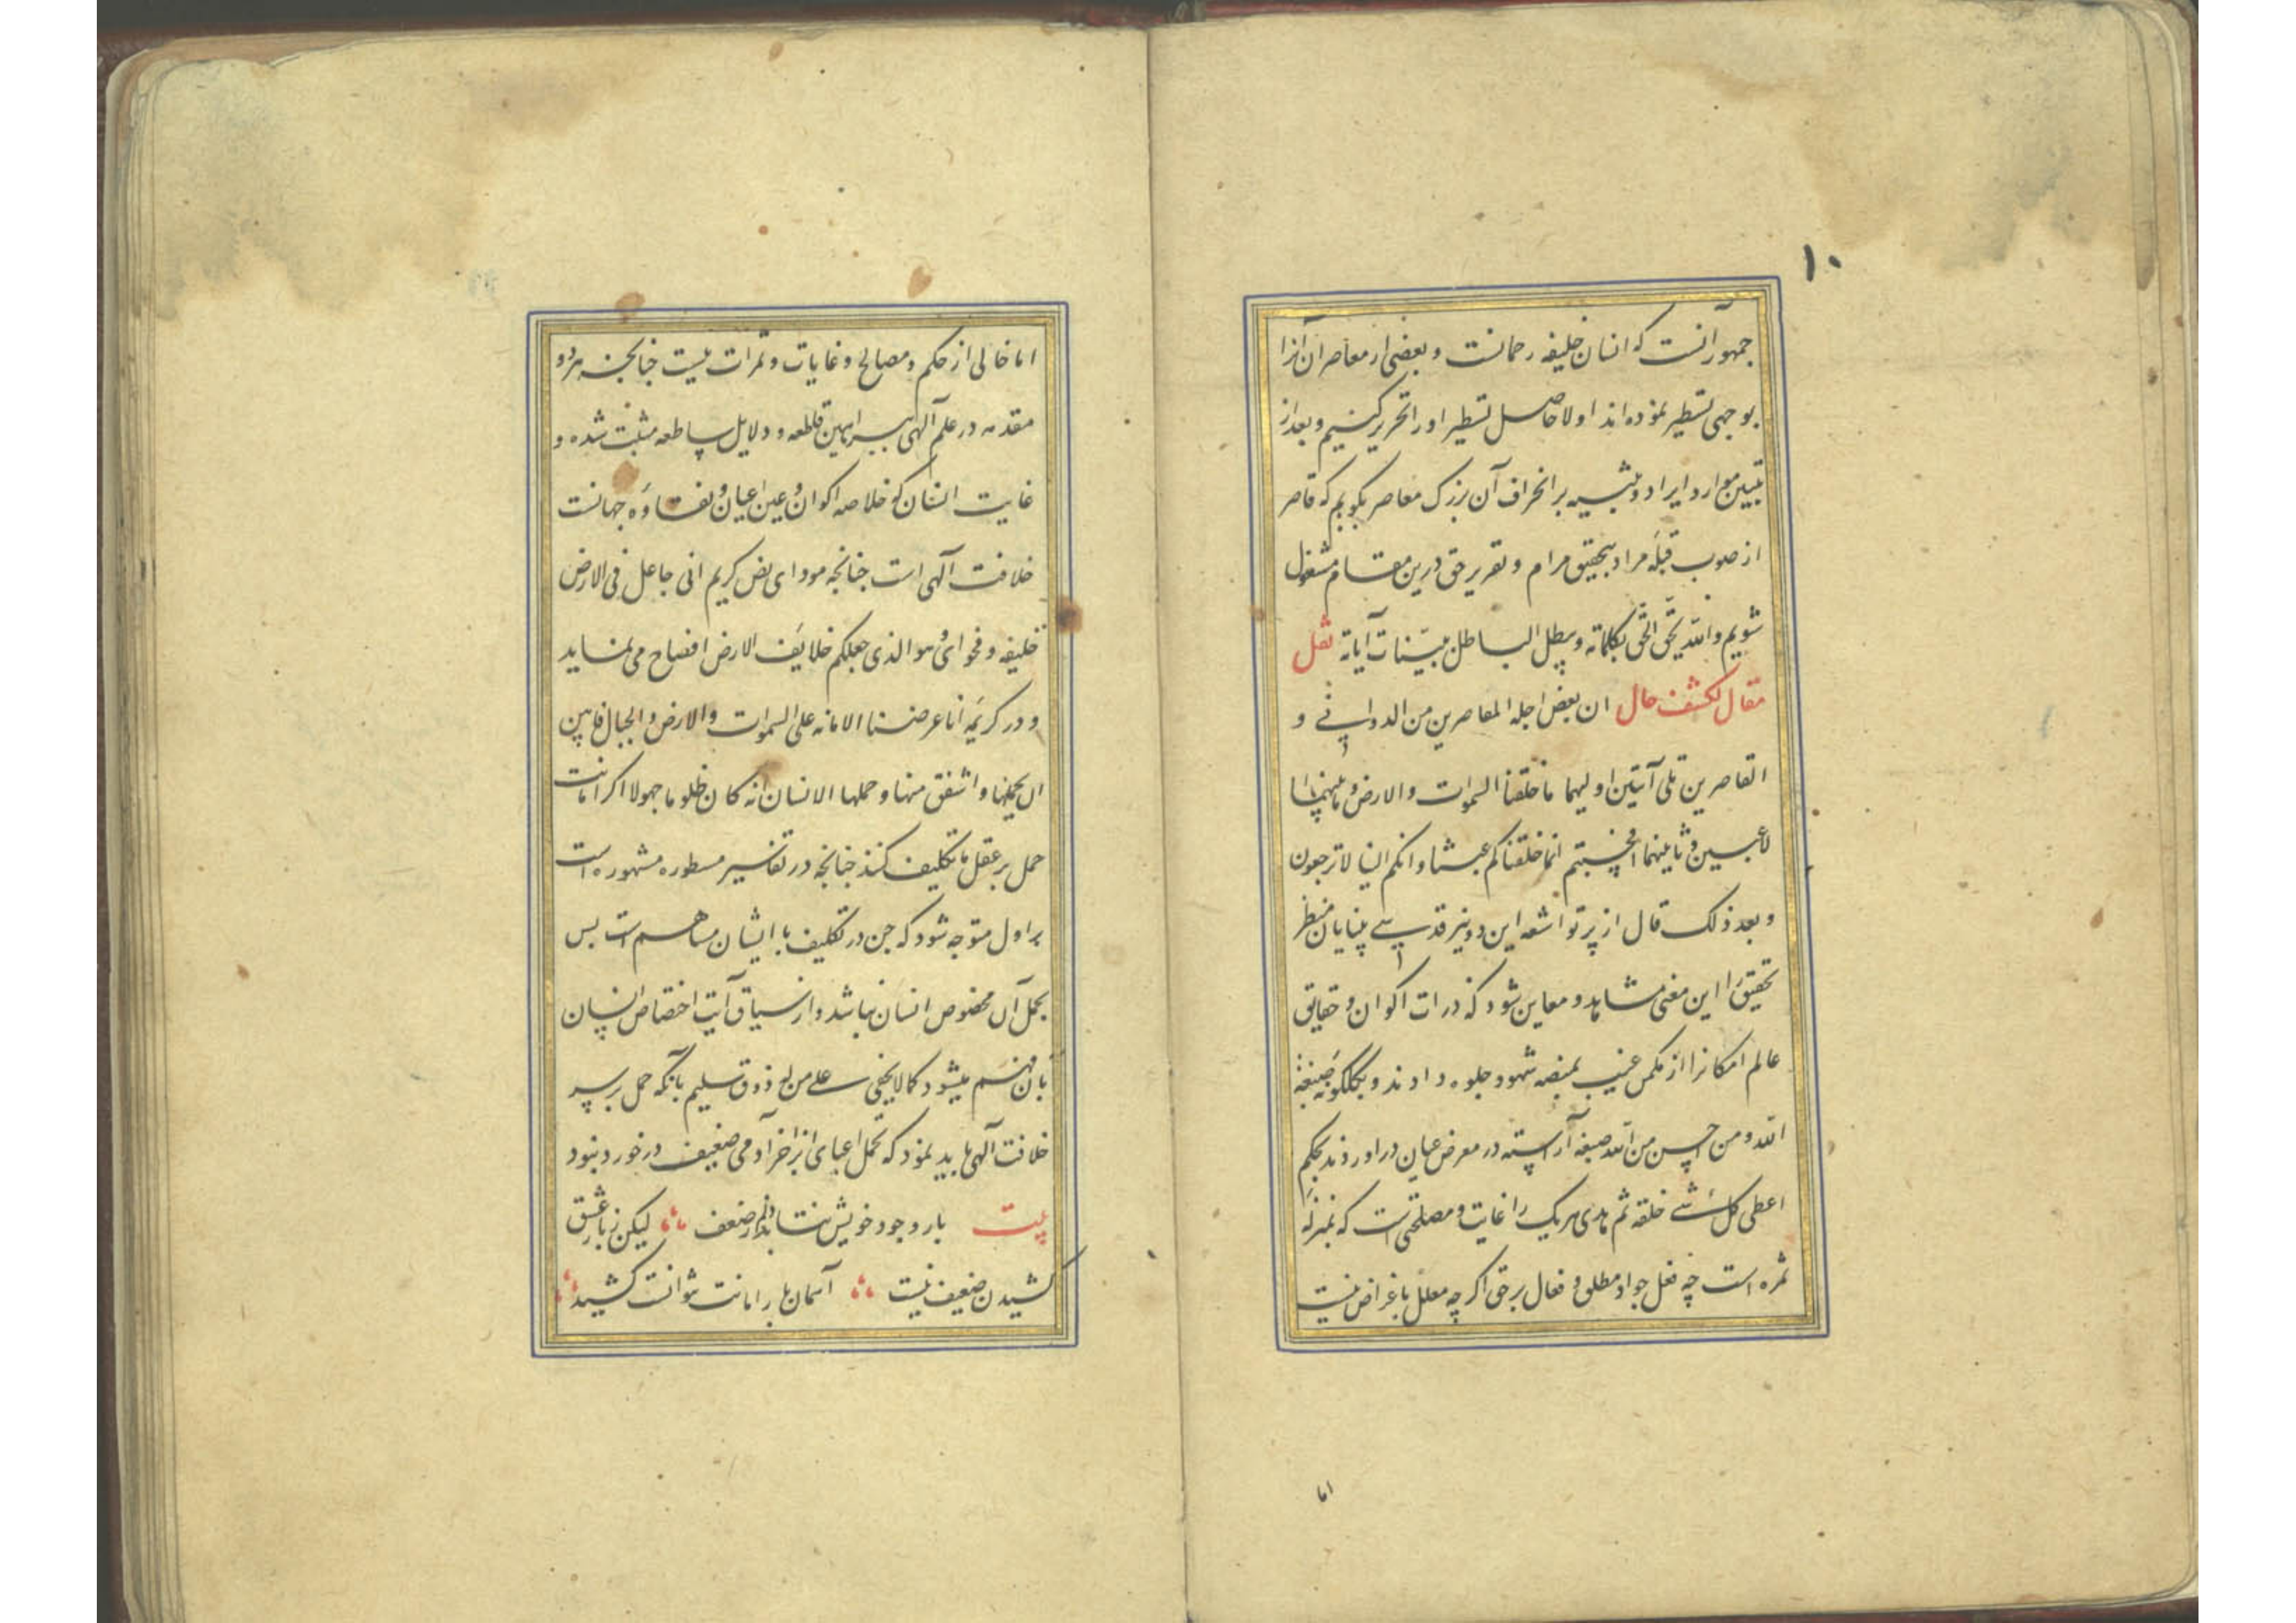 ۱۰
جمهور آنست که انسان خلیفه رحمانست و بعضی از معاصران آنرا
بوجهی تسطیر نموده‌اند اولا حاصل تسطیر او را تحریر کنیم و بعد از
تبیین موارد ایراد و تنبیه بر انحراف آن بزرک معاصر بگوییم که قاصر
از صوب قبله مراد بتحقیق مرام و تقریر حق درین مقام مشغول
شویم والله یحق الحق بکلماته و یبطل الباطل ببینات آیاته نقل
مقال لکشف حال ان بعض اجله المعاصرین من الدوانی و
القاصرین تلی آیتین اولیهما ما خلقنا السموات والارض وما بینهما
لاعبین و ثانیهما افحسبتم انما خلقناکم عبثا وانکم الینا لا ترجعون
و بعد ذلک قال از پرتو اشعه این دو نیر قدسی بینایان منظر
تحقیق را این معنی مشاهد و معاین شود که ذرات اکوان و حقایق
عالم امکانرا از مکمن غیب بمنصه شهود جلوه دادند و بکلکونه صبغة
الله ومن احسن من الله صبغه آراسته در معرض عیان دراوردند بحکم
اعطی کل شئ خلقه ثم هدی هر یک را غایت و مصلحتی است که بمنزله
ثمره است چه فعل جواد مطلق و فعال برحق اکرچه معلل باغراض نیست
اما
اما خالی از حکم و مصالح و غایات و ثمرات نیست چنانچه هر دو
مقدمه در علم آلهی ببراهین قاطعه و دلایل ساطعه مثبت شده و
غایت انسان کو خلاصه اکوان و عین اعیان و نقاوه جهانست
خلافت آلهی است چنانچه مودای نص کریم انی جاعل فی الارض
خلیفه و فحوای هو الذی جعلکم خلایف الارض افصاح می‌نماید
و در کریمه انا عرضنا الامانه علی السموات والارض والجبال فابین
ان یحملنها واشفقن منها وحملها الانسان انه کان ظلوما جهولا اکر امانت
حمل بر عقل یا تکلیف کنند چنانچه در تفاسیر مسطوره مشهوره است
بر اول متوجه شود که جن در تکلیف با ایشان مساهم است پس
تحمل آن مخصوص انسان نباشد و از سیاق آیت اختصاص انسان
بآن فهم میشود کما لا یخفی علی من له ذوق سلیم بانکه حمل بر سر
خلافت آلهی باید نمود که تحمل اعبای آنرا جز آدمی ضعیف درخور نبود
بیت بار وجود خویش نتابد دلم ز ضعف لیکن ز بار عشق
کشیدن ضعیف نیست آسمان بار امانت نتوانست کشید